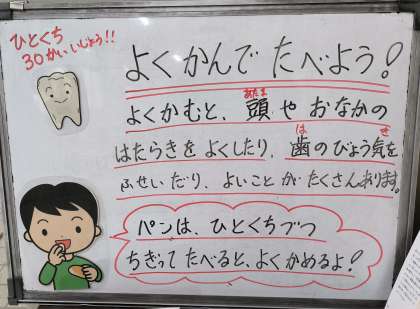 ひとくち
30かいいじょう!!
よくかんで たべよう!
よくかむと、頭や おなかの
あたま
はたらきを よくしたり、歯の びょう気を
は
き
ふせいだり、よいことが たくさんあります。
パンは、ひとくちづつ
ちぎって たべると、よくかめるよ!